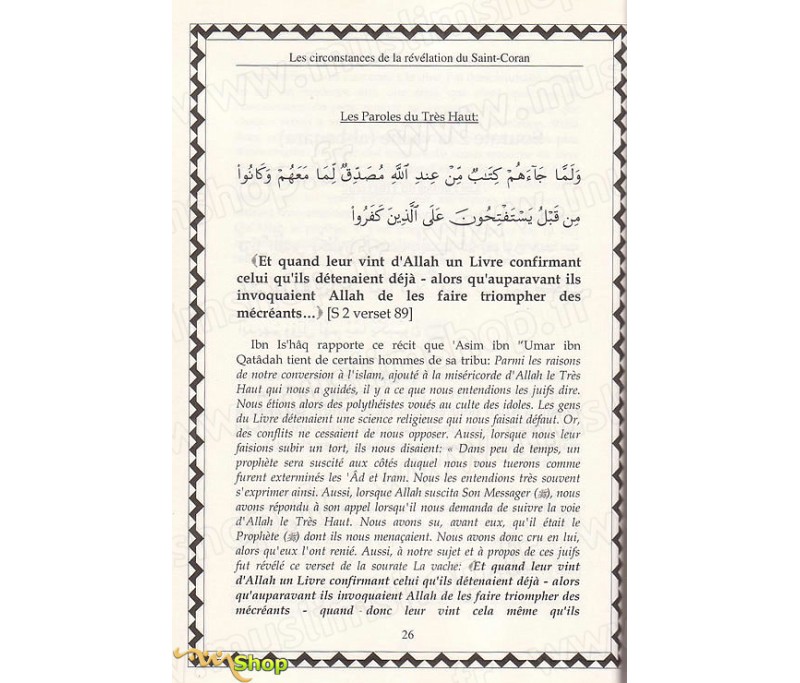 Les circonstances de la révélation du Saint-Coran
Les Paroles du Très Haut:
وَلَمَّا جَآءَهُمْ كِتَٰبٌ مِّنْ عِندِ ٱللَّهِ مُصَدِّقٌ لِّمَا مَعَهُمْ وَكَانُوا۟
مِن قَبْلُ يَسْتَفْتِحُونَ عَلَى ٱلَّذِينَ كَفَرُوا۟
﴾Et quand leur vint d'Allah un Livre confirmant
celui qu'ils détenaient déjà - alors qu'auparavant ils
invoquaient Allah de les faire triompher des
mécréants...﴿ [S 2 verset 89]
Ibn Is'hâq rapporte ce récit que 'Asim ibn ‘‘Umar ibn
Qatâdah tient de certains hommes de sa tribu: Parmi les raisons
de notre conversion à l'islam, ajouté à la miséricorde d'Allah le Très
Haut qui nous a guidés, il y a ce que nous entendions les juifs dire.
Nous étions alors des polythéistes voués au culte des idoles. Les gens
du Livre détenaient une science religieuse qui nous faisait défaut. Or,
des conflits ne cessaient de nous opposer. Aussi, lorsque nous leur
faisions subir un tort, ils nous disaient: « Dans peu de temps, un
prophète sera suscité aux côtés duquel nous vous tuerons comme
furent exterminés les 'Âd et Iram. Nous les entendions très souvent
s'exprimer ainsi. Aussi, lorsque Allah suscita Son Messager (ﷺ), nous
avons répondu à son appel lorsqu'il nous demanda de suivre la voie
d'Allah le Très Haut. Nous avons su, avant eux, qu'il était le
Prophète (ﷺ) dont ils nous menaçaient. Nous avons donc cru en lui,
alors qu'eux l'ont renié. Aussi, à notre sujet et à propos de ces juifs
fut révélé ce verset de la sourate La vache: ﴾Et quand leur vint
d'Allah un Livre confirmant celui qu'ils détenaient déjà - alors
qu'auparavant ils invoquaient Allah de les faire triompher des
mécréants - quand donc leur vint cela même qu'ils
26
Shop